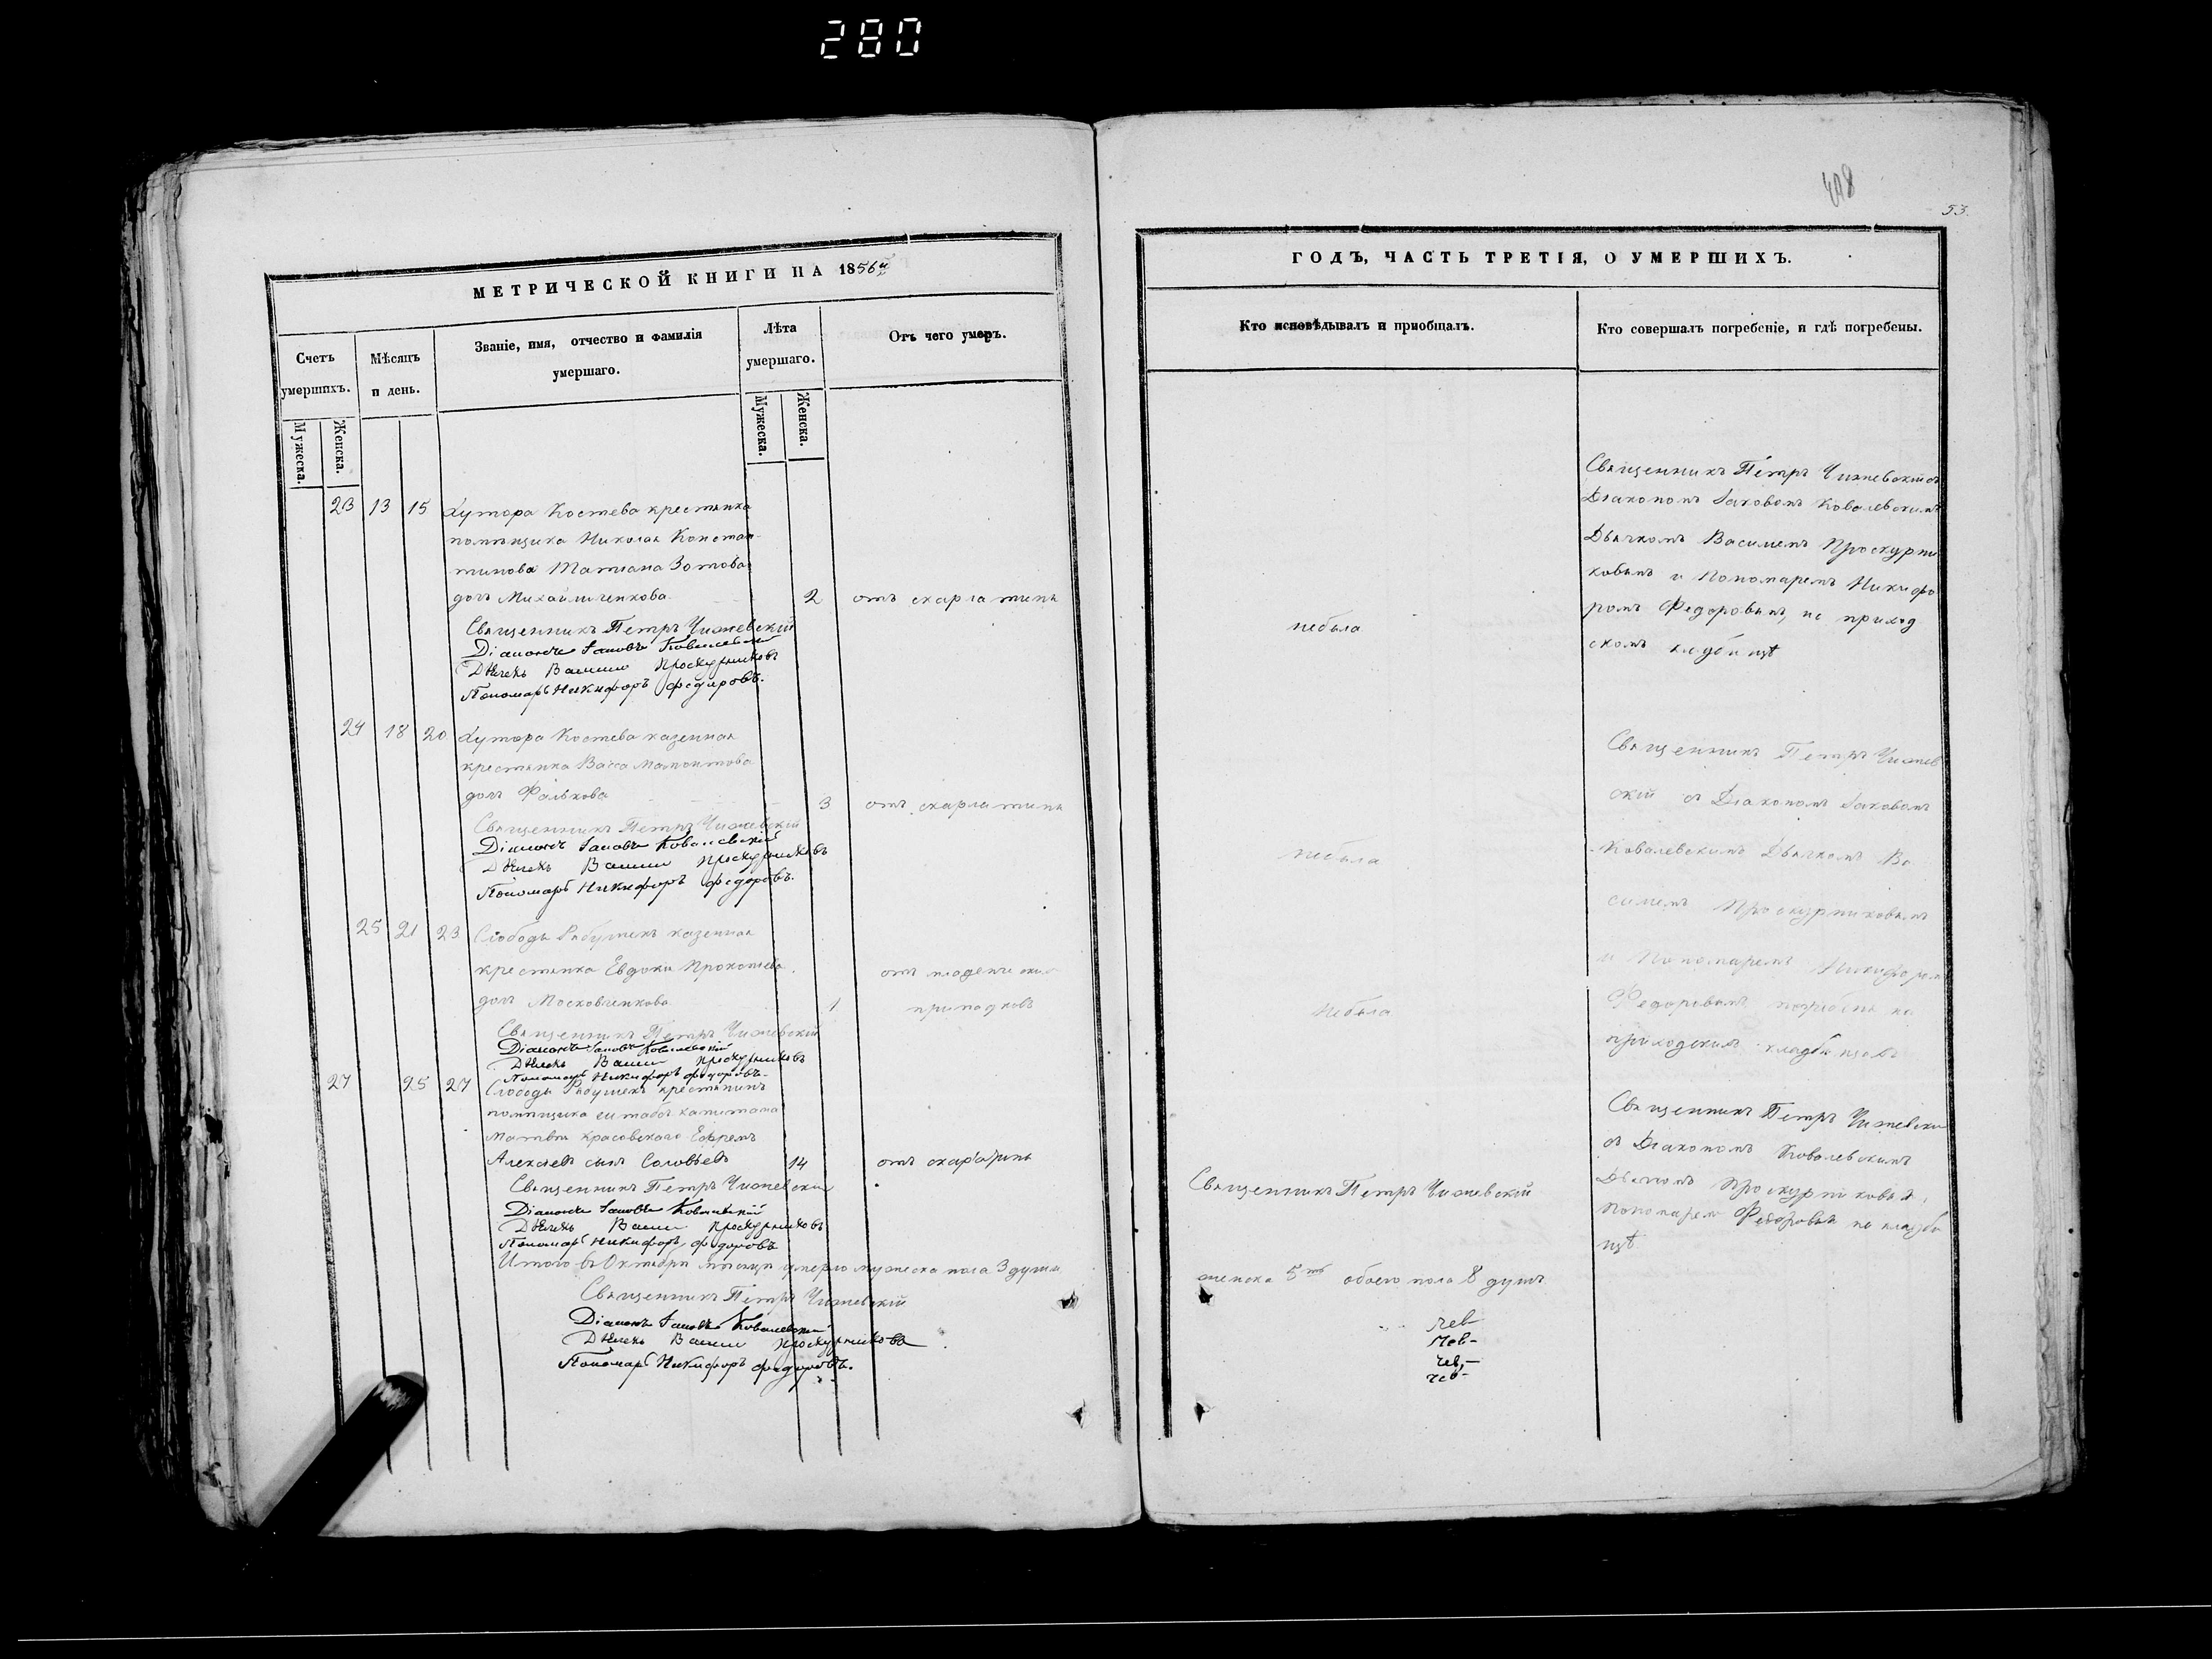 280
МЕТРИЧЕСКОЙ КНИГИ НА 1856й
Счетъ умершихъ.
Мѣсяцъ и день.
Званіе, имя, отчество и фамилія умершаго.
Лѣта умершаго.
Отъ чего умеръ.
Мужеска.
Женска.
Мужеска.
Женска.
23 13 15 Хутора Костева крестянка
помѣщика Николая Констан-
тинова Татіана Зотова
дочь Михайличенкова 2 отъ скарлатины
Священникъ Петръ Чижевскій
Діаконъ Іаковъ Ковалевскій
Дьячекъ Василій Проскурниковъ
Пономарь Никифоръ Федоровъ.
24 18 20 Хутора Костева казенная
крестянка Васса Мамонтова
дочь Фалькова 3 отъ скарлатины
Священникъ Петръ Чижевскій
Діаконъ Іаковъ Ковалевскій
Дьячекъ Василій Проскурниковъ
Пономарь Никифоръ Федоровъ.
25 21 23 Слободы Рябушекъ казенная
крестянка Евдокія Прокопіева отъ младенческихъ
дочь Московченкова 1 припадковъ
Священникъ Петръ Чижевскій
Діаконъ Іаковъ Ковалевскій
Дьячекъ Василій Проскурниковъ
Пономарь Никифоръ Федоровъ.
27 25 27 Слободы Рябушекъ крестянинъ
помѣщика штабсъ капитана
Матвѣя Красовскаго Ефремъ
Алексѣевъ сынъ Соловьевъ 14 отъ скарлатины
Священникъ Петръ Чижевскій
Діаконъ Іаковъ Ковалевскій
Дьячекъ Василій Проскурниковъ
Пономарь Никифоръ Федоровъ
Итого въ Октябрѣ мѣсяцѣ умерло мужеска пола 3 души
Священникъ Петръ Чижевскій
Діаконъ Іаковъ Ковалевскій
Дьячекъ Василій Проскурниковъ
Пономарь Никифоръ Федоровъ.
53.
ГОДЪ, ЧАСТЬ ТРЕТІЯ, О УМЕРШИХЪ.
Кто исповѣдывалъ и пріобщалъ.
Кто совершалъ погребеніе, и гдѣ погребены.
Священникъ Петръ Чижевскій съ
Діакономъ Іаковомъ Ковалевскимъ
Дьячкомъ Василіемъ Проскурни
ковымъ и Пономаремъ Никифо
ромъ Федоровымъ, на приход
скомъ кладбищѣ
небыла
Священникъ Петръ Чижев
скій съ Діакономъ Іаковомъ
Ковалевскимъ Дьячкомъ Ва
силіемъ Проскурниковымъ
и Пономаремъ Никифоромъ
Федоровымъ погребены на
приходскомъ кладбищѣ
небыла
небыла
Священникъ Петръ Чижевскій
съ Діакономъ Ковалевскимъ
Дьячкомъ Проскурниковым
Пономарем Федоровым на кладби
щѣ
Священникъ Петръ Чижевскій
женска 5ть обоего пола 8 душъ